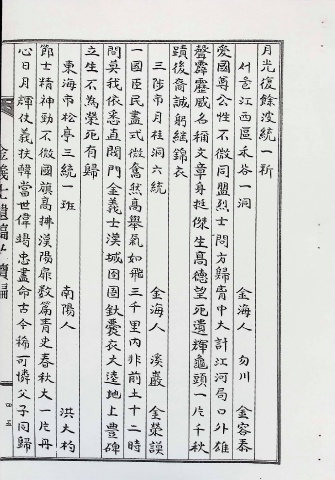 月光復餘波統一新
서울江西區禾谷一洞　金海人　勿川　金容泰
愛國尊公性不微同盟烈士問方歸胷中大計江河局口外雄
聲霹靂威名稱文章身挺傑生高德望死遺輝龜頭一片千秋
蹟後裔誠躬結錦衣
三陟市月桂洞六統　金海人　溪巖　金榮謨
一國臣民盡式微奮然高擧氣如飛三千里內非前土十二時
間莫我依悉直閭門金義士漢城囹圄欽囊衣大逵地上豊碑
立生不為榮死有歸
東海市松亭三統一班　南陽人　洪大杓
節士精神勁不微國旗高拂漢陽扉數篇靑史春秋大一片丹
心日月輝仗義扶韓當世偉竭忠盡命古今稱可憐父子同歸
金義士遺稿 續編